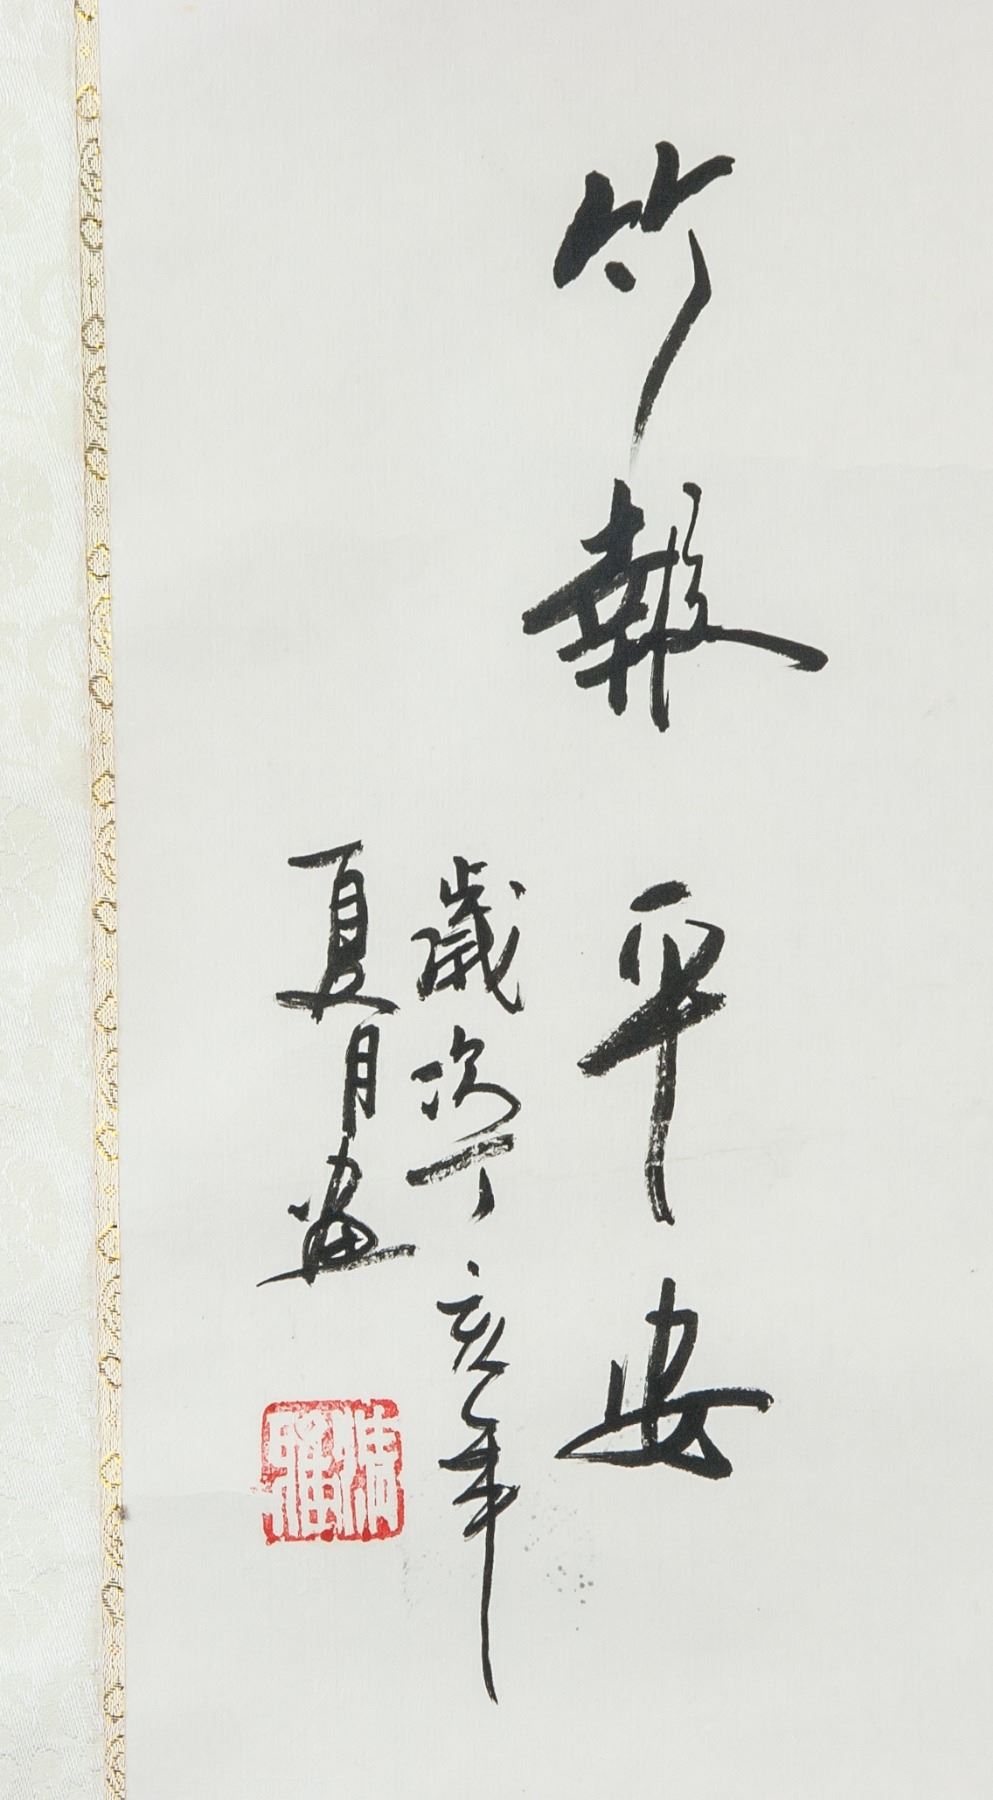 竹報平安
歲次丁亥年
夏月畫
清雅